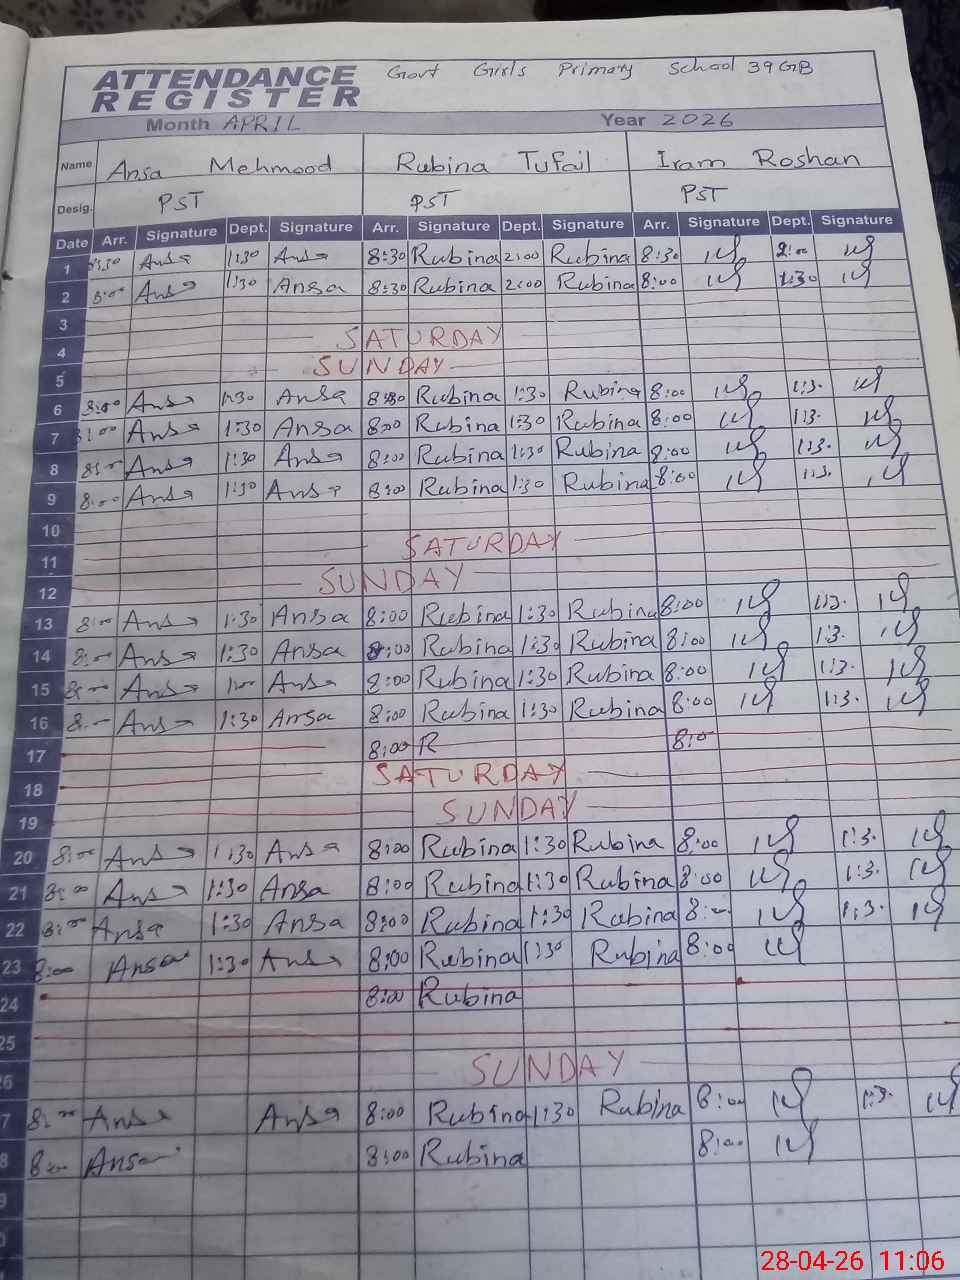 ATTENDANCE REGISTER Govt Girls Primary School 39GB
Month APRIL Year 2026
Name Ansa Mehmood Rubina Tufail Iram Roshan
Desig. PST PST PST
Date Arr. Signature Dept. Signature Arr. Signature Dept. Signature Arr. Signature Dept. Signature
1 8:30 Ansa 1:30 Ansa 8:30 Rubina 2:00 Rubina 8:30 2:00
2 8:00 Ansa 1:30 Ansa 8:30 Rubina 2:00 Rubina 8:00 1:30
3
SATURDAY
4
SUNDAY
5
6 8:00 Ansa 1:30 Ansa 8:30 Rubina 1:30 Rubina 8:00 1:3.
7 8:00 Ansa 1:30 Ansa 8:00 Rubina 1:30 Rubina 8:00 1:3.
8 8:00 Ansa 1:30 Ansa 8:00 Rubina 1:30 Rubina 8:00 1:3.
9 8:00 Ansa 1:30 Ansa 8:00 Rubina 1:30 Rubina 8:00 1:3.
10
SATURDAY
11
SUNDAY
12
13 8:00 Ansa 1:30 Ansa 8:00 Rubina 1:30 Rubina 8:00 1:3.
14 8:00 Ansa 1:30 Ansa 8:00 Rubina 1:30 Rubina 8:00 1:3.
15 8:00 Ansa Ansa 8:00 Rubina 1:30 Rubina 8:00 1:3.
16 8:00 Ansa 1:30 Ansa 8:00 Rubina 1:30 Rubina 8:00 1:3.
17 8:00 R 8:0
SATURDAY
18
SUNDAY
19
20 8:00 Ansa 1:30 Ansa 8:00 Rubina 1:30 Rubina 8:00 1:3.
21 8:00 Ansa 1:30 Ansa 8:00 Rubina 1:30 Rubina 8:00 1:3.
22 8:00 Ansa 1:30 Ansa 8:00 Rubina 1:30 Rubina 8:00 1:3.
23 8:00 Ansa 1:30 Ansa 8:00 Rubina 1:30 Rubina 8:00
24 8:00 Rubina
25
SUNDAY
6
7 8:00 Ansa Ansa 8:00 Rubina 1:30 Rubina 8:00 1:3.
8 8:00 Ansa 8:00 Rubina 8:00
9
28-04-26 11:06